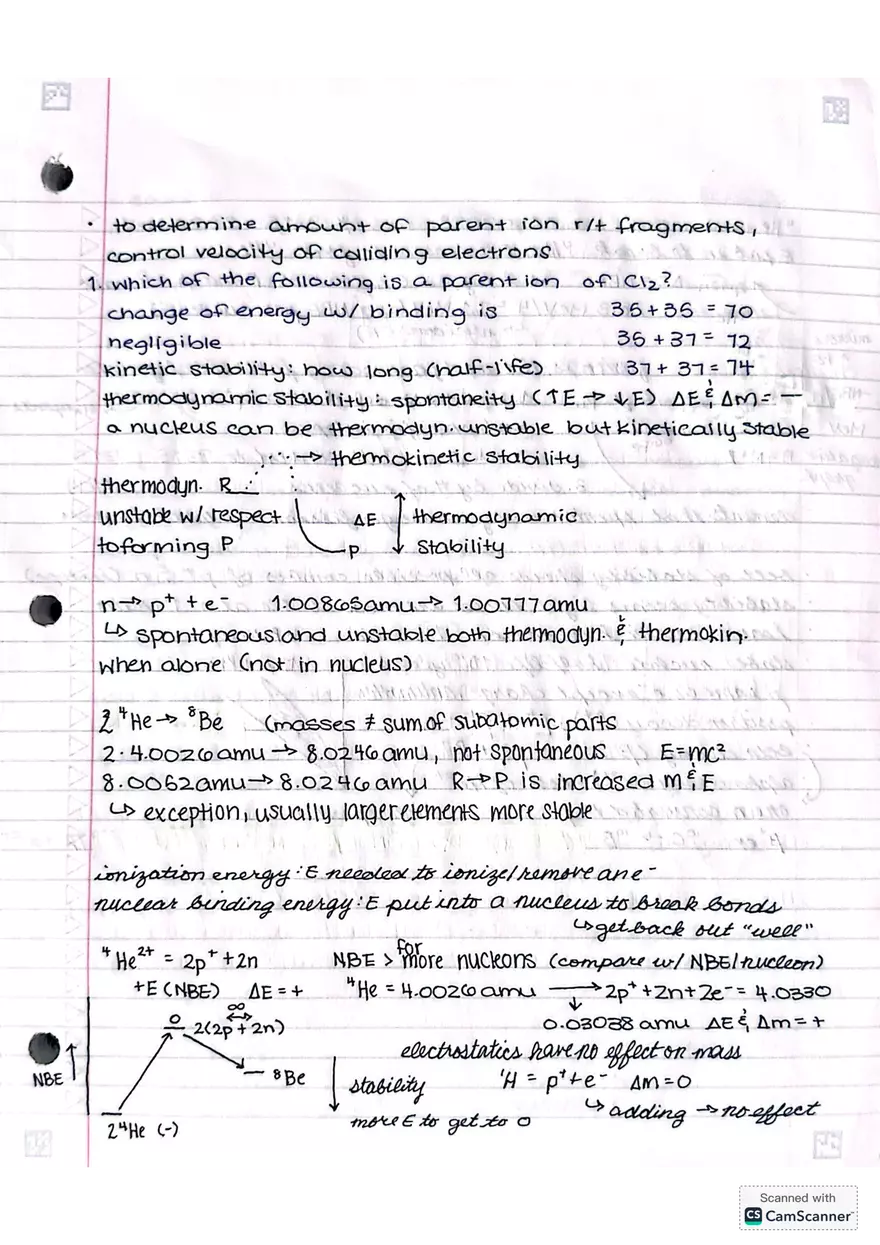 · to determine amount of parent ion r/t fragments,
control velocity of colliding electrons
1. which of the following is a parent ion of Cl₂?
change of energy w/ binding is 35+35 = 70
negligible 35+37 = 72
kinetic stability: how long (half-life) 37+ 37= 74
thermodynamic stability: spontaneity (↑E → ↓E) ΔE & Δm = —
a nucleus can be thermodyn. unstable but kinetically stable
→ thermokinetic stability
thermodyn. R
unstable w/ respect ΔE thermodynamic
to forming P P stability
n → p⁺ + e⁻ 1.00865amu → 1.00777amu
↳ spontaneous and unstable both thermodyn. & thermokin.
when alone (not in nucleus)
2 ⁴He → ⁸Be (masses ≠ sum of subatomic parts
2·4.0026amu → 8.0246amu, not spontaneous E=mc²
8.0052amu → 8.0246amu R→P is increased m & E
↳ exception, usually larger elements more stable
ionization energy: E needed to ionize/remove an e⁻
nuclear binding energy: E put into a nucleus to break bonds
↳ get back out "well"
⁴He²⁺ = 2p⁺ + 2n NBE > for more nucleons (compare w/ NBE/nucleon)
+E (NBE) ΔE = + ⁴He = 4.0026amu → 2p⁺+2n+2e⁻ = 4.0330
∞
0 2(2p⁺+2n) 0.03038 amu ΔE & Δm = +
electrostatics have no effect on mass
NBE ⁸Be stability ¹H = p⁺+e⁻ Δm=0
↳ adding → no effect
2⁴He (-) more E to get to 0
Scanned with
CS CamScanner